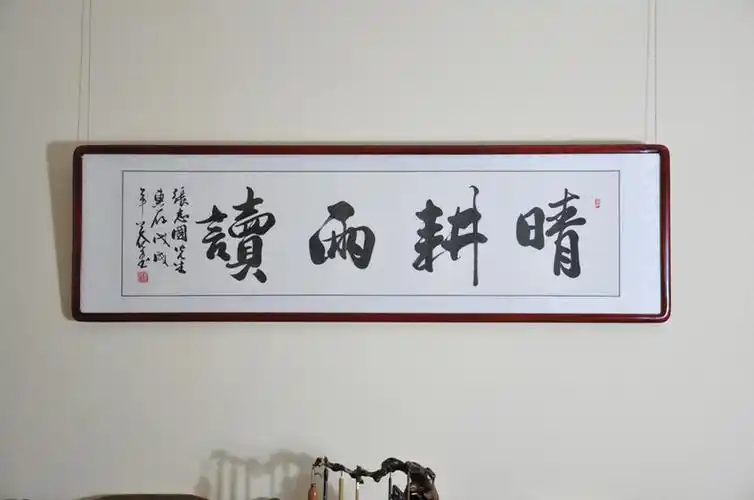 晴耕雨讀
張志國先生
惠存戊戌
年